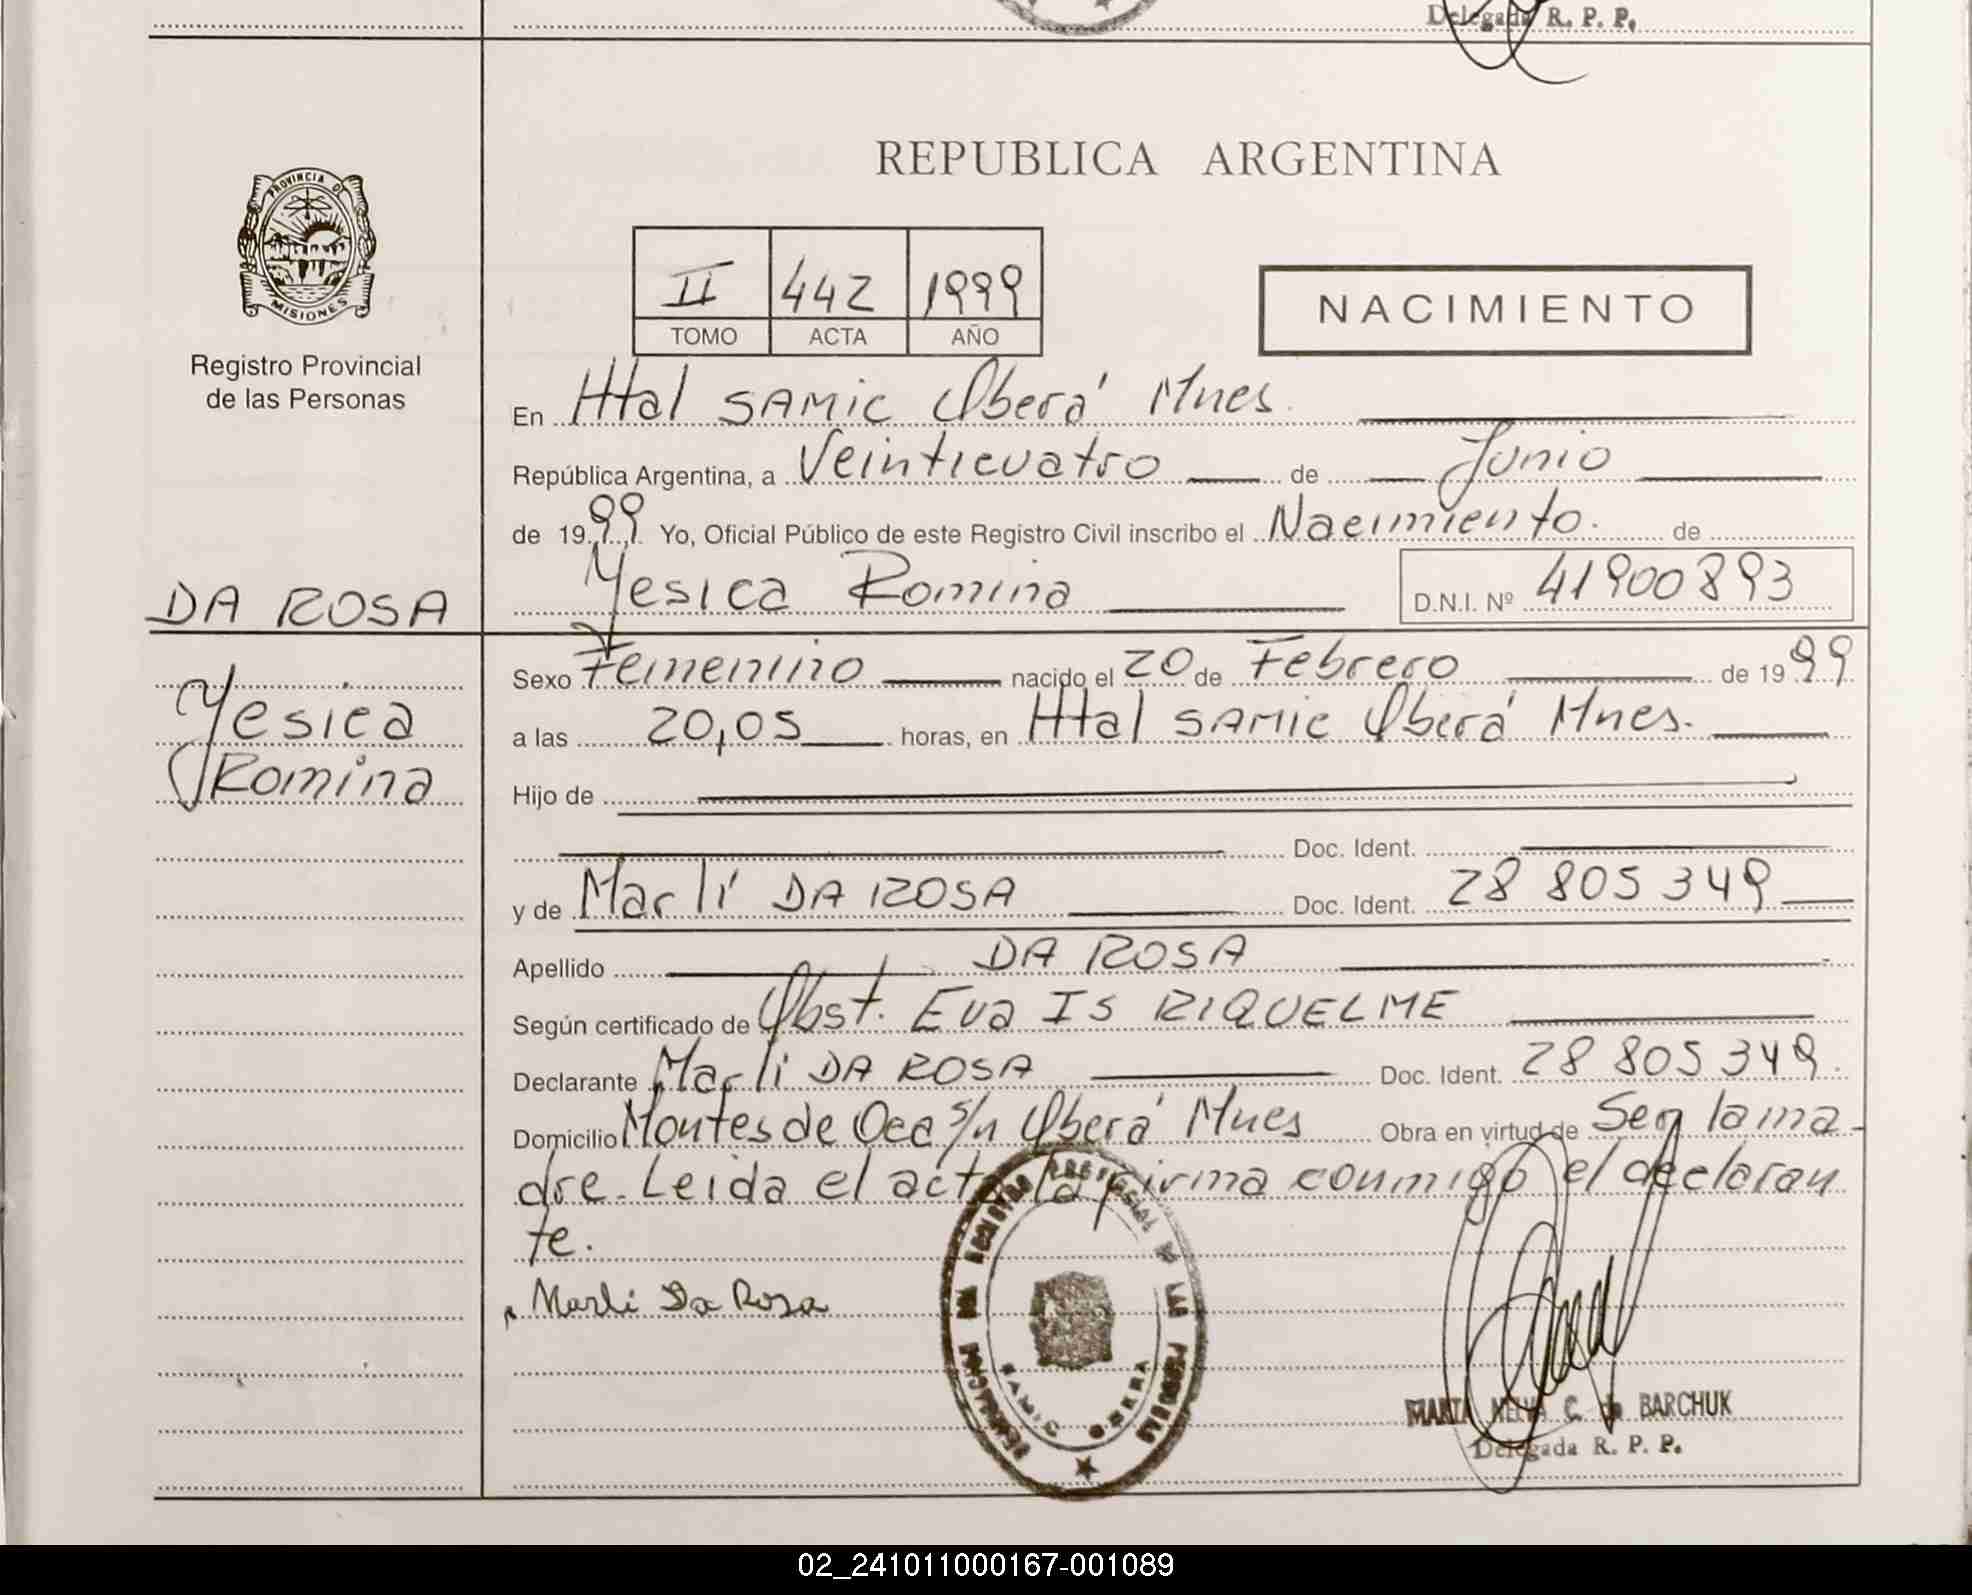 Delegada R. P. P.
REPUBLICA ARGENTINA
PROVINCIA DE
MISIONES
Registro Provincial
de las Personas
II 442 1999
TOMO ACTA AÑO
NACIMIENTO
En Htal SAMIC Oberá Mnes.
República Argentina, a Veinticuatro de Junio
de 1999 Yo, Oficial Público de este Registro Civil inscribo el Nacimiento. de
Yesica Romina D.N.I. Nº 41900893
DA ROSA
Yesica
Romina
Sexo Femenino nacido el 20 de Febrero de 1999
a las 20,05 horas, en Htal SAMIC Oberá Mnes.
Hijo de
Doc. Ident.
y de Marlí DA ROSA Doc. Ident. 28 805 349
Apellido DA ROSA
Según certificado de Obst. Eva IS RIQUELME
Declarante Marli DA ROSA Doc. Ident. 28 805 349.
Domicilio Montes de Oca s/n Oberá Mnes Obra en virtud de Ser la ma
dre. Leida el acta la firma conmigo el declaran
te.
Marli Da Rosa
REGISTRO PROVINCIAL DE LAS PERSONAS
SAMIC OBERA
MARIA NELVA C. de BARCHUK
Delegada R. P. P.
02_241011000167-001089